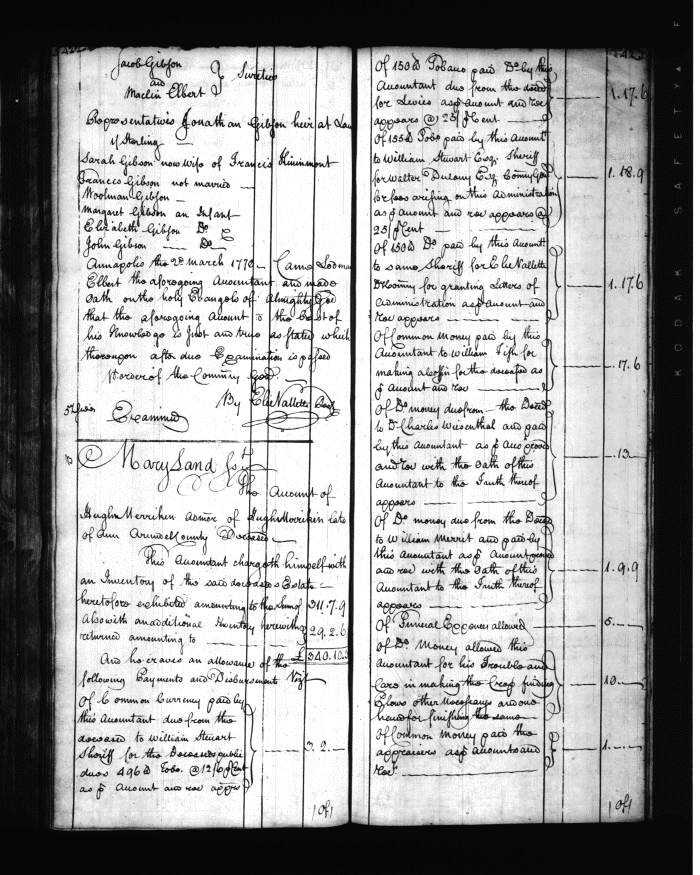 Jacob Gibson
and
Maclin Elbert } Sureties
Representatives Jonathan Gibson heir at Law
Sterling
Sarah Gibson now wife of Francis
Frances Gibson not married
Woolman Gibson
Margaret Gibson an Infant
Elizabeth Gibson Do
John Gibson Do
Annapolis the 2d March 1770 Came
Elbert the aforegoing Accountant and made
Oath on the holy Evangels of Almighty God
that the aforegoing Account to the best of
his Knowledge is Just and true as stated which
thereupon after due Examination is passed
order of the
By Elie Vallette
Examined
Maryland Ss
The Amount of
Hugh Merriken Admor of Hugh Merrikin late
of Ann Arundel County Deceased
This Accountant chargeth himself with
an Inventory of the said deceaseds Estate
heretofore exhibited amounting to the Sum of 311.7.9
Also with an additional Inventory herewith
returned amounting to 29.2.6
£340.10.3
And he craves an allowance of the
following Payments and Disbursements Vizt
Of Common Currency paid by
this Accountant due from the
deceased to William Steuart
Sheriff for the Deceaseds public
dues 496 Tobo. @ 12/6 Cent
as Account and
3.2
1 Of 1
Of 150 Tobaco paid Do by this
Accountant due from the decd
for Levies as Account and
appears @ 25/ Cent 1.17.6
Of 155 Tobo paid by this Accountt
to William Stewart Esq. Sheriff
for Walter Dulany Esq.
for fees arising on this Administration
as Account and appears @
25/ Cent 1.18.9
Of 150 Do paid by this Accountt
to same Sheriff for Elie Vallette
for granting Letters of
Administration as Account and
appears 1.17.6
Of Common Money paid by this
Accountant to William for
making a Coffin for the deceased as
Account and .17.6
Of Do money due from the Deced
to Dr Charles Wiesenthal and paid
by this Accountant as proved
and with the Oath of this
Accountant to the Truth thereof
appears .13
Of Do money due from the Deced
to William Merrit and paid by
this Accountant as Account
and with the Oath of this
Accountant to the Truth thereof
appears 1.9.9
Of Funeral Expences allowed 5.
Of Do Money allowed this
Accountant for his Trouble and
Care in making the Crop finding
Plows other
for finishing the same 10
Of Common Money paid the
appraisers as accounts and
1.
1 Of 1
KODAK SAFETY F